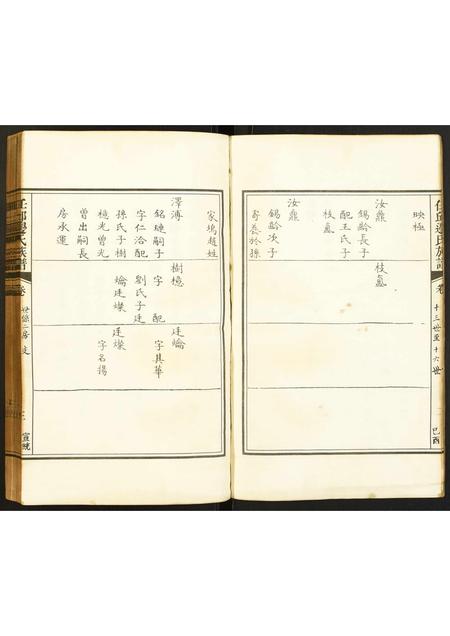 任邱邊氏族譜
卷
十三世至十六世
己酉
映極
汝鼎
錫齡長子
配王氏子
枝
枝
汝鼐
錫齡次子
寄養於孫
家塢趙姓
澤溥
銘璉嗣子
字仁洽配
孫氏子樹
檍光曾光
曾出嗣長
房永運
樹檍
字 配
劉氏子廷
爚廷燦
廷爚
字其華
廷燦
字名揚
任邱邊氏族譜
卷
世系二房
支
三
宣統